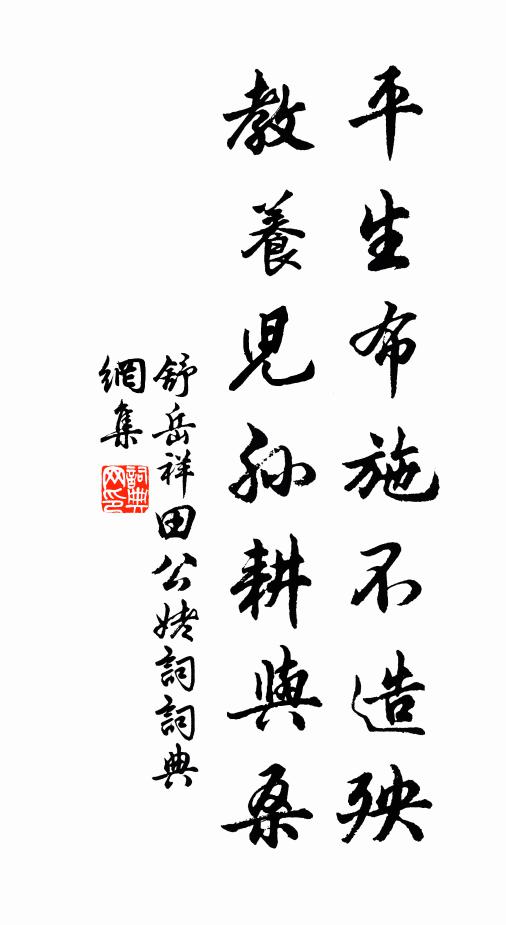 平生布施不造殃
教養児孫耕與桑
舒岳祥田公姥詞詞典
網集
詞典
网印